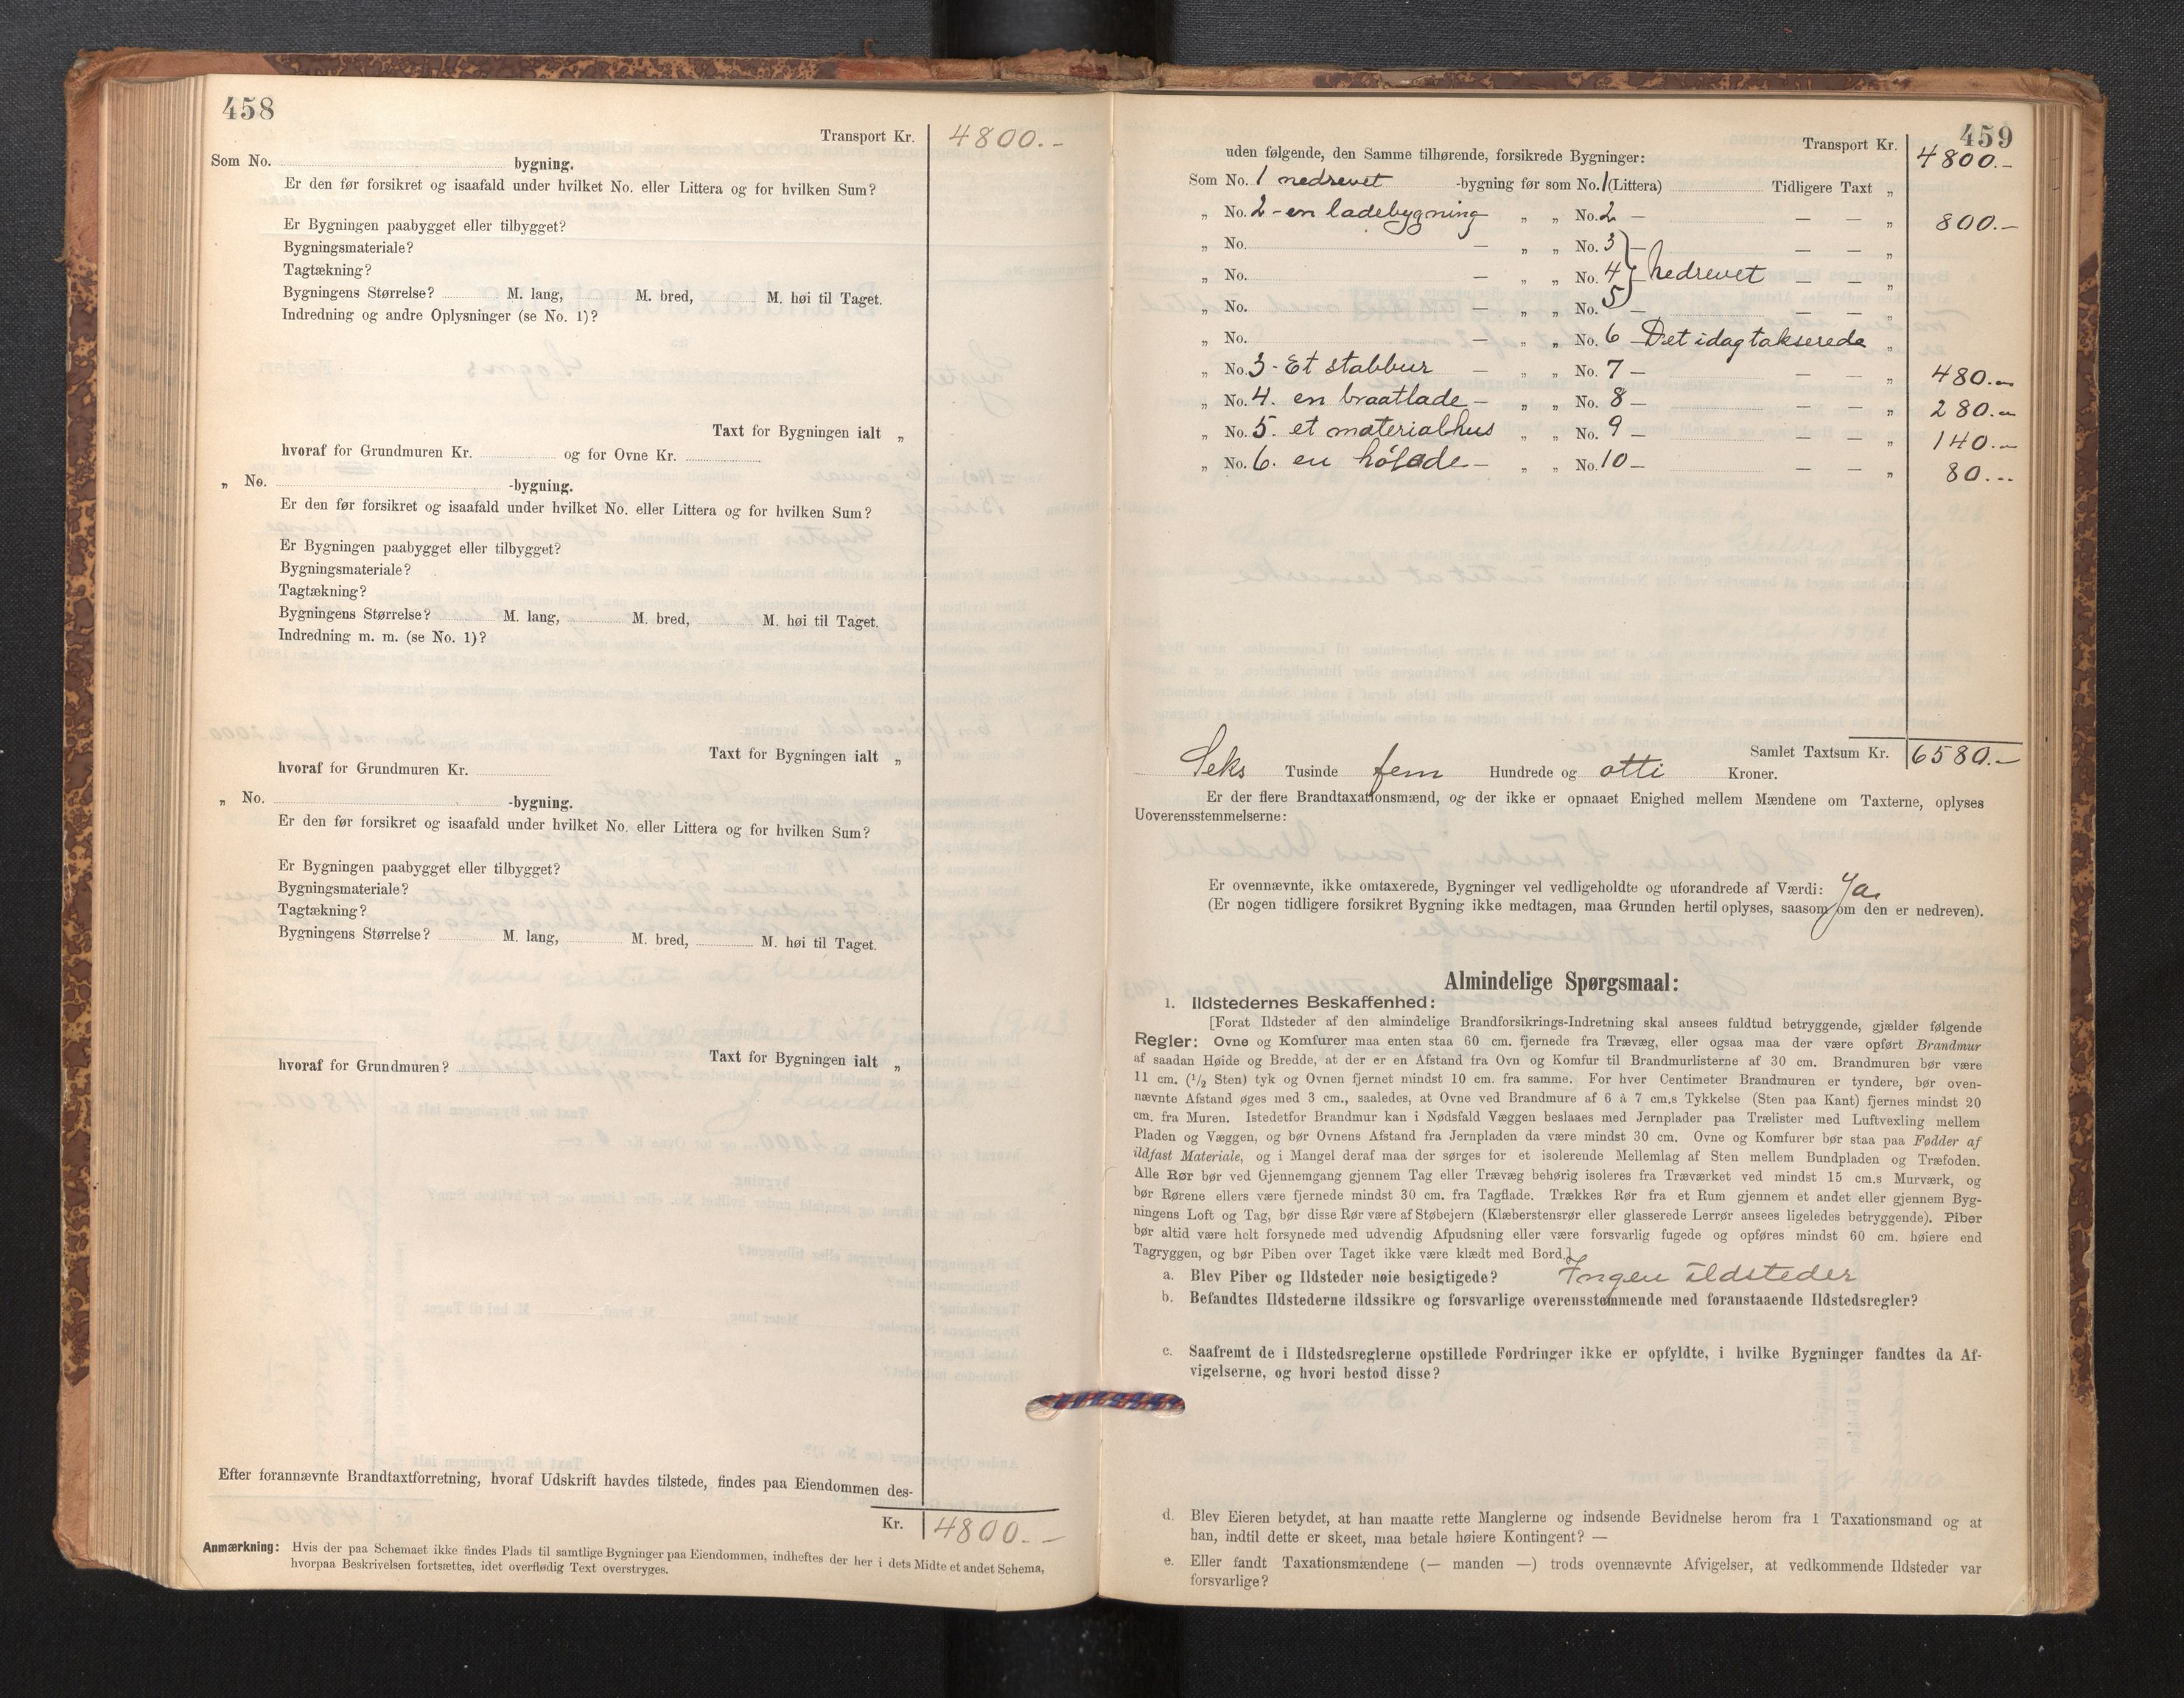 458
Transport Kr. 4800.-
Som No. bygning.
Er den før forsikret og isaafald under hvilket No. eller Littera og for hvilken Sum?
Er Bygningen paabygget eller tilbygget?
Bygningsmateriale?
Tagtækning?
Bygningens Størrelse? M. lang, M. bred, M. høi til Taget.
Indredning og andre Oplysninger (se No. 1)?
Taxt for Bygningen ialt „
hvoraf for Grundmuren Kr. og for Ovne Kr.
„ No. -bygning.
Er den før forsikret og isaafald under hvilket No. eller Littera og for hvilken Sum?
Er Bygningen paabygget eller tilbygget?
Bygningsmateriale?
Tagtækning?
Bygningens Størrelse? M. lang, M. bred, M. høi til Taget.
Indredning m. m. (se No. 1)?
Taxt for Bygningen ialt „
hvoraf for Grundmuren Kr.
„ No. -bygning.
Er den før forsikret og isaafald under hvilket No. eller Littera og for hvilken Sum?
Er Bygningen paabygget eller tilbygget?
Bygningsmateriale?
Tagtækning?
Bygningens Størrelse? M. lang, M. bred, M. høi til Taget.
Taxt for Bygningen ialt „
hvoraf for Grundmuren?
Efter forannævnte Brandtaxtforretning, hvoraf Udskrift havdes tilstede, findes paa Eiendommen des-
Kr. 4800.-
Anmærkning: Hvis der paa Schemaet ikke findes Plads til samtlige Bygninger paa Eiendommen, indheftes der her i dets Midte et andet Schema,
hvorpaa Beskrivelsen fortsættes, idet overflødig Text overstryges.
459
Transport Kr. 4800.-
uden følgende, den Samme tilhørende, forsikrede Bygninger:
Som No. 1 nedrevet -bygning før som No. 1 (Littera) Tidligere Taxt „
„ No. 2 - en ladebygning „ „ No. 2 — — — „ 800.-
„ No. — „ „ No. 3 — — — „
„ No. — „ „ No. 4 — nedrevet — — „
„ No. — „ „ No. 5 — — — „
„ No. — „ „ No. 6 Det idag takserede „
„ No. 3 - Et stabbur — „ „ No. 7 — — — „ 480.-
„ No. 4. en braatlade — „ „ No. 8 — — — „ 280.-
„ No. 5. et materialhus „ „ No. 9 — — — „ 140.-
„ No. 6. en hølade — „ „ No. 10 — — — „ 80.-
Samlet Taxtsum Kr. 6580.-
Seks Tusinde fem Hundrede og otti Kroner.
Er der flere Brandtaxationsmænd, og der ikke er opnaaet Enighed mellem Mændene om Taxterne, oplyses
Uoverensstemmelserne:
Er ovennævnte, ikke omtaxerede, Bygninger vel vedligeholdte og uforandrede af Værdi: Ja
(Er nogen tidligere forsikret Bygning ikke medtagen, maa Grunden hertil oplyses, saasom om den er nedreven).
Almindelige Spørgsmaal:
1. Ildstedernes Beskaffenhed:
[Forat Ildsteder af den almindelige Brandforsikrings-Indretning skal ansees fuldtud betryggende, gjælder følgende
Regler: Ovne og Komfurer maa enten staa 60 cm. fjernede fra Trævæg, eller ogsaa maa der være opført Brandmur
af saadan Høide og Bredde, at der er en Afstand fra Ovn og Komfur til Brandmurlisterne af 30 cm. Brandmuren bør være
11 cm. (1/2 Sten) tyk og Ovnen fjernet mindst 10 cm. fra samme. For hver Centimeter Brandmuren er tyndere, bør oven-
nævnte Afstand øges med 3 cm., saaledes, at Ovne ved Brandmure af 6 à 7 cm.s Tykkelse (Sten paa Kant) fjernes mindst 20
cm. fra Muren. Istedetfor Brandmur kan i Nødsfald Væggen beslaaes med Jernplader paa Trælister med Luftvexling mellem
Pladen og Væggen, og bør Ovnens Afstand fra Jernpladen da være mindst 30 cm. Ovne og Komfurer bør staa paa Fødder af
ildfast Materiale, og i Mangel deraf maa der sørges for et isolerende Mellemlag af Sten mellem Bundpladen og Træfoden.
Alle Rør bør ved Gjennemgang gjennem Tag eller Trævæg behørig isoleres fra Træværket ved mindst 15 cm.s Murværk, og
bør Rørene ellers være fjernede mindst 30 cm. fra Tagflade. Trækkes Rør fra et Rum gjennem et andet eller gjennem Byg-
ningens Loft og Tag, bør disse Rør være af Støbejern (Klæberstensrør eller glasserede Lerrør ansees ligeledes betryggende). Piber
bør altid være helt forsynede med udvendig Afpudsning eller være forsvarlig fugede og opføres mindst 60 cm. høiere end
Tagryggen, og bør Piben over Taget ikke være klædt med Bord.]
a. Blev Piber og Ildsteder nøie besigtigede? Ingen ildsteder
b. Befandtes Ildstederne ildssikre og forsvarlige overensstemmende med foranstaaende Ildstedsregler?
c. Saafremt de i Ildstedsreglerne opstillede Fordringer ikke er opfyldte, i hvilke Bygninger fandtes da Af-
vigelserne, og hvori bestod disse?
d. Blev Eieren betydet, at han maatte rette Manglerne og indsende Bevidnelse herom fra 1 Taxationsmand og at
han, indtil dette er skeet, maa betale høiere Kontingent? —
e. Eller fandt Taxationsmændene (— manden —) trods ovennævnte Afvigelser, at vedkommende Ildsteder var
forsvarlige?